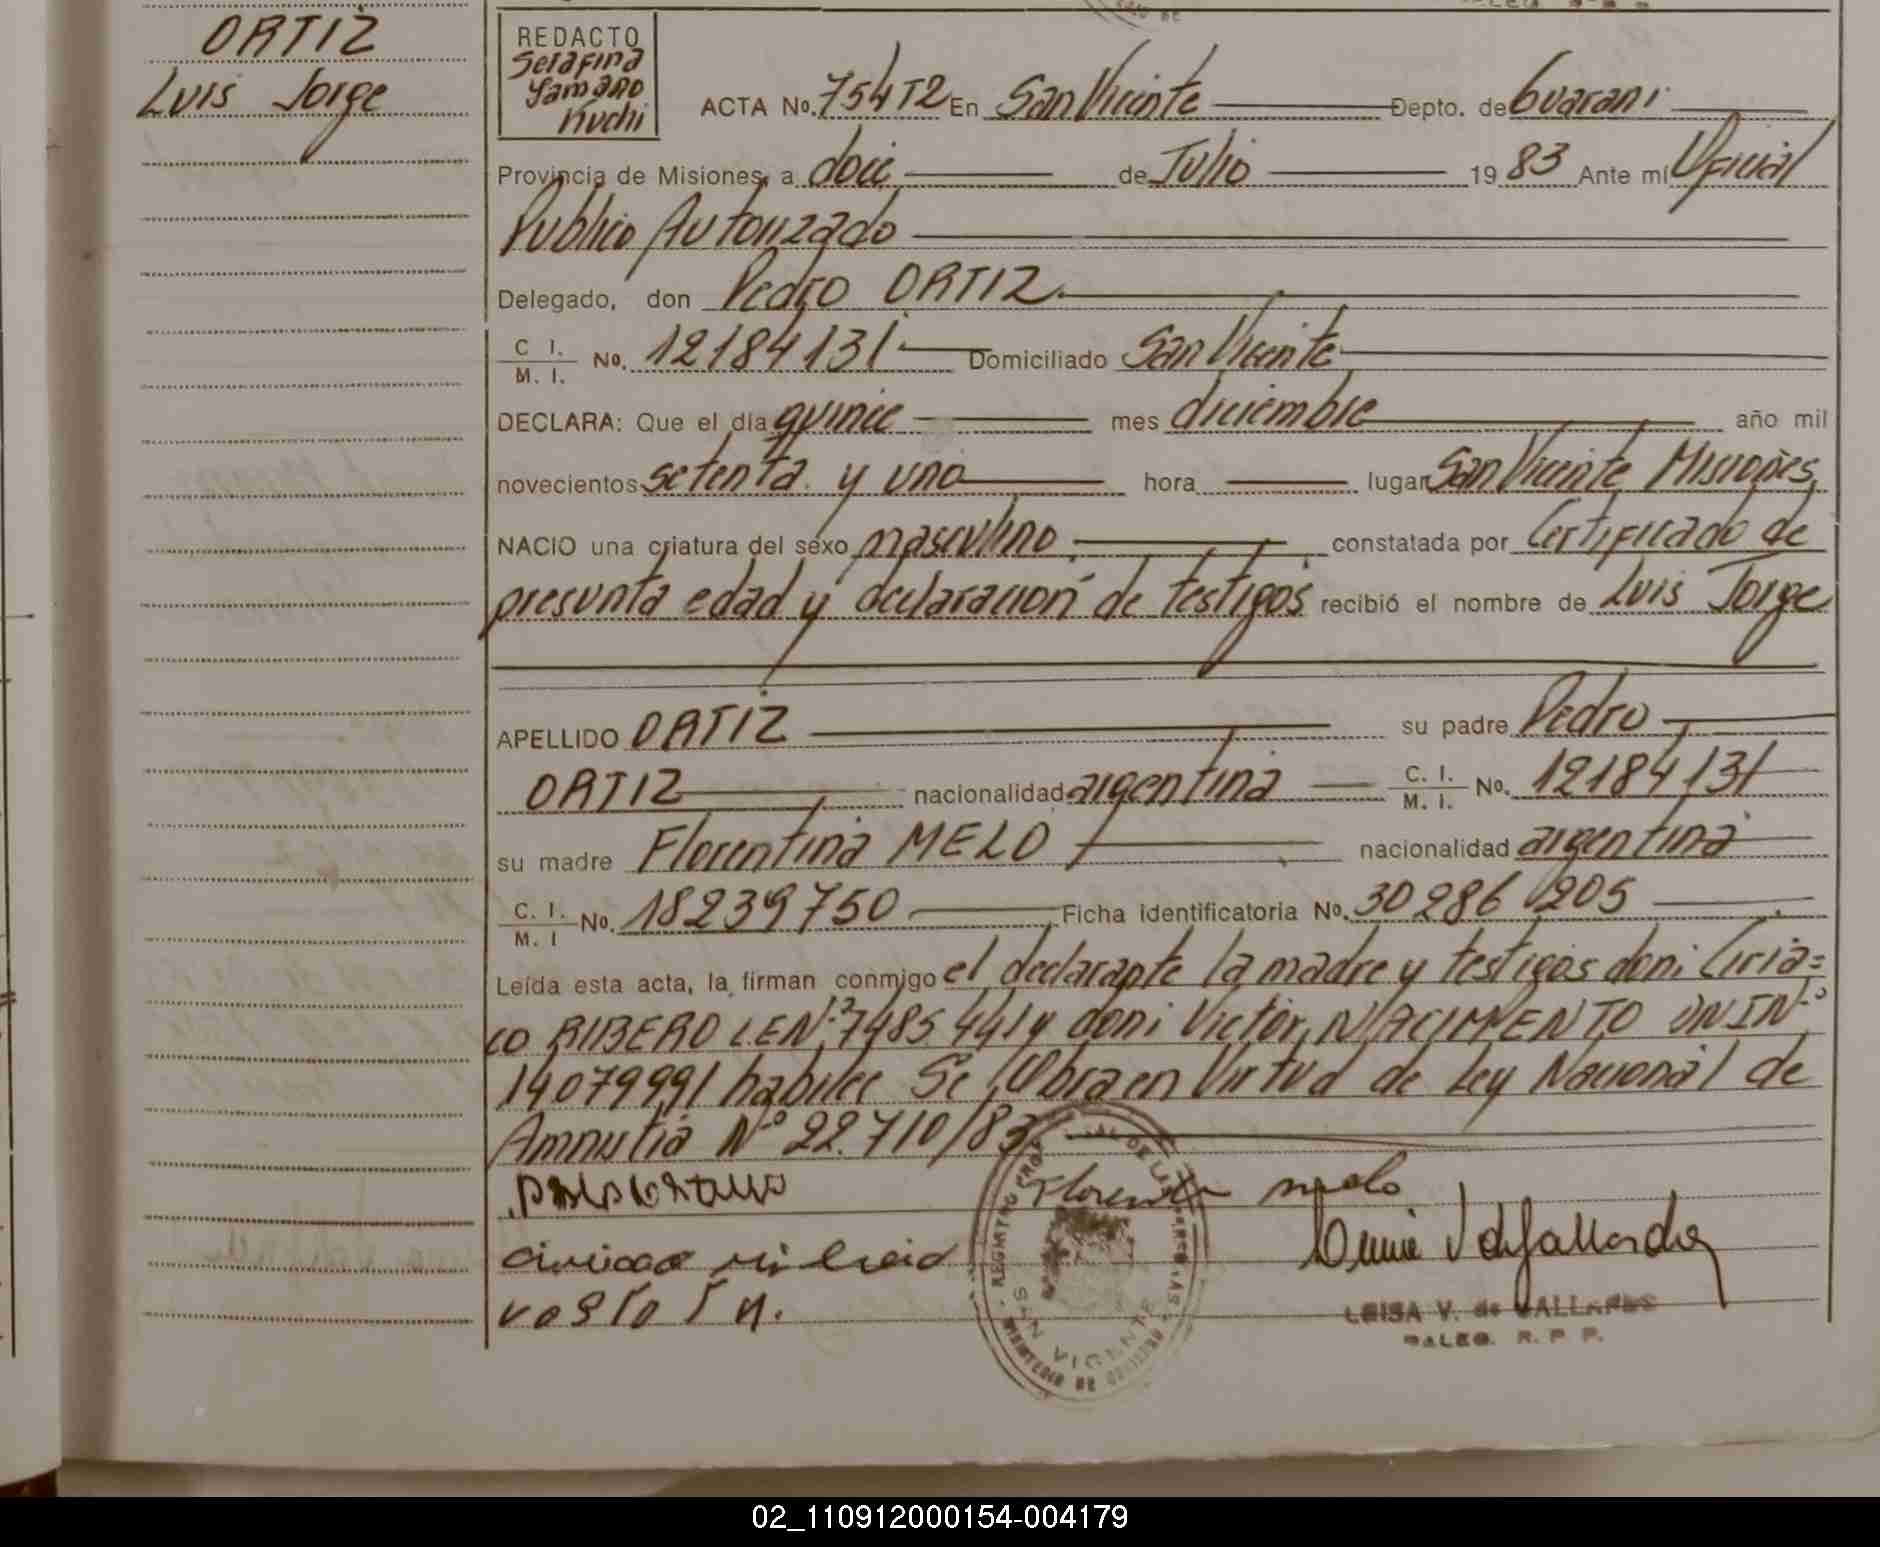 ORTIZ
Luis Jorge
REDACTO
Serafina
Yamano
Kuchi
ACTA No. 754T2 En San Vicente Depto. de Guarani
Provincia de Misiones, a doce de Julio 1983 Ante mí Oficial
Publico Autorizado
Delegado, don Pedro ORTIZ.
C I. M. I. No. 12184131 Domiciliado San Vicente
DECLARA: Que el día quince mes diciembre año mil
novecientos setenta y uno hora lugar San Vicente Misiones,
NACIO una criatura del sexo masculino constatada por Certificado de
presunta edad y declaración de testigos recibió el nombre de Luis Jorge
APELLIDO ORTIZ su padre Pedro
ORTIZ nacionalidad argentina C. I. M. I. No. 12184131
su madre Florentina MELO nacionalidad argentina
C. I. M. I No. 18239750 Ficha identificatoria No. 30286205
Leída esta acta, la firman conmigo el declarante la madre y testigos don: Ciria=
co RIBERO L.E.Nº 7485.441 y don: Victor NACIMENTO DNIN-º
14079991 habiles Se Obra en Virtud de Ley Nacional de
Amnistia Nº 22.710/83
Florentina melo
REGISTRO
SAN VICENTE
LUISA V. de VALLARES
DALEG. R. P. P.
02_110912000154-004179